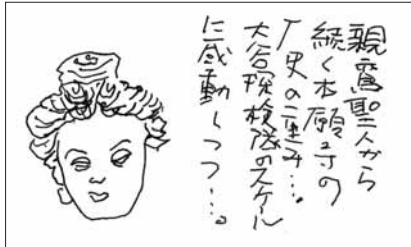 親鸞聖人から
続く本願寺の
歴史の重み…。
大谷探検隊のスケール
に感動しつつ…。